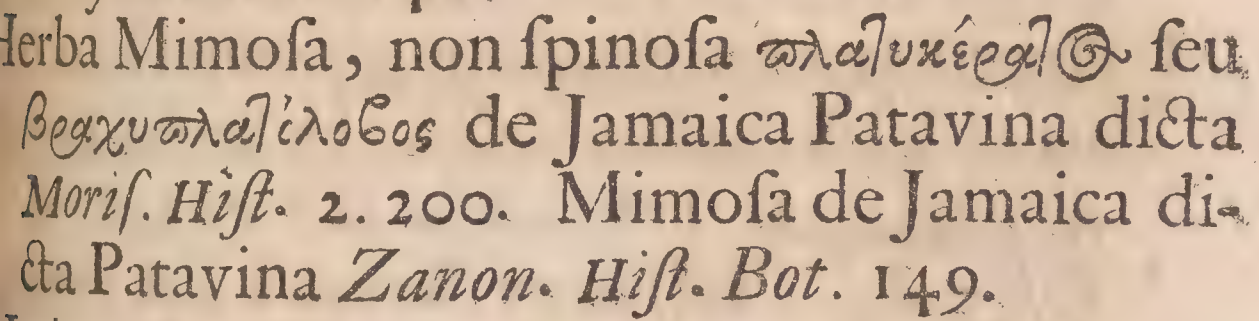 Herba Mimoſa, non ſpinoſa πλατυκέρατος ſeu
βραχυπλατίλοβος de Jamaica Patavina dicta
Moriſ. Hiſt. 2. 200. Mimoſa de Jamaica di-
cta Patavina Zanon. Hiſt. Bot. 149.